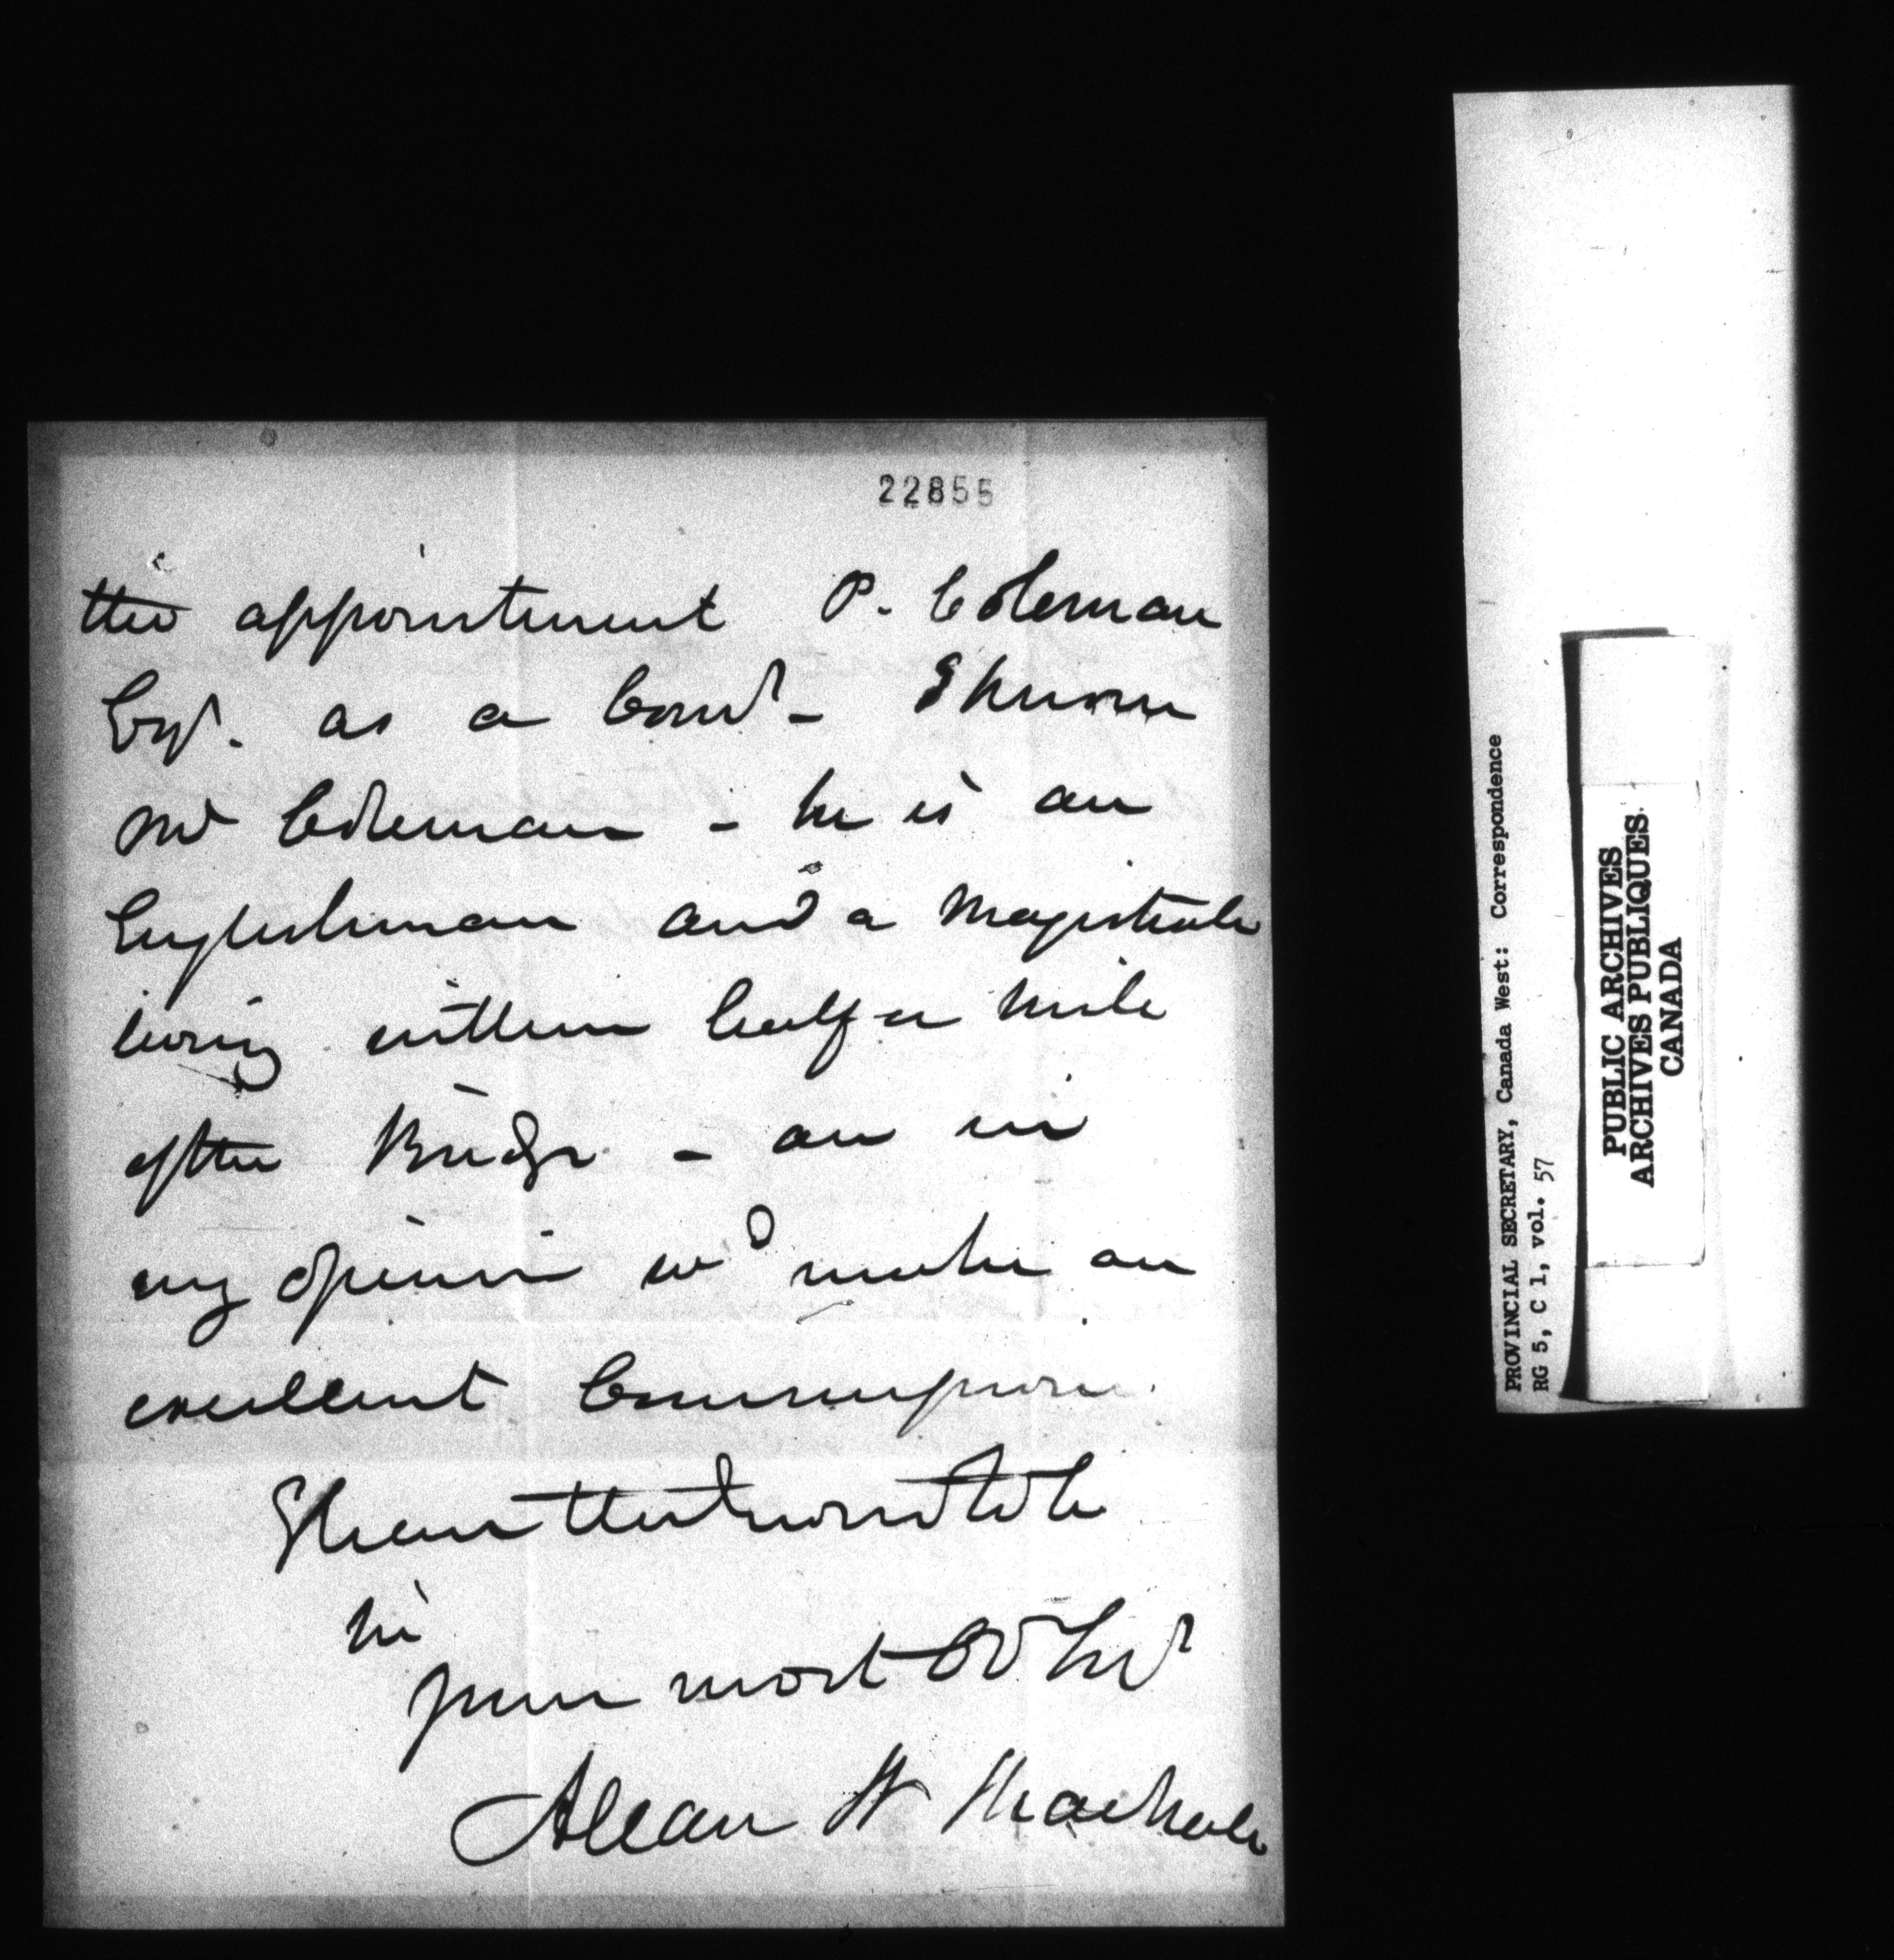 22855
the appointment P. Coleman
Esqr. as a Comr - I know
Mr Coleman - he is an
Englishman and a Magistrate
living within half a mile
of the Bridge - an in
my opinion wd make an
excellent Commissioner.
I have the honor to be
Sir
your most Ob Sert
Allan N Macnab
PROVINCIAL SECRETARY, Canada West: Correspondence
RG 5, C 1, vol. 57
PUBLIC ARCHIVES
ARCHIVES PUBLIQUES
CANADA